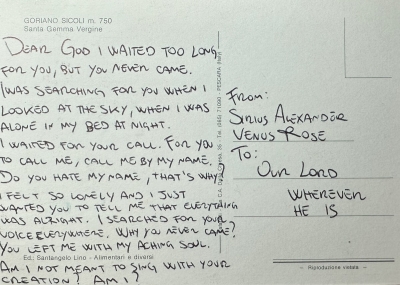 GORIANO SICOLI m. 750
Santa Gemma Vergine
DEAR GOD I WAITED TOO LONG
FOR YOU, BUT YOU NEVER CAME.
I WAS SEARCHING FOR YOU WHEN I
LOOKED AT THE SKY, WHEN I WAS
ALONE IN MY BED AT NIGHT.
I WAITED FOR YOUR CALL. FOR YOU
TO CALL ME, CALL ME BY MY NAME.
DO YOU HATE MY NAME, THAT'S WHY?
I FELT SO LONELY AND I JUST
WANTED YOU TO TELL ME THAT EVERYTHING
WAS ALRIGHT. I SEARCHED FOR YOUR
VOICE EVERYWHERE. WHY YOU NEVER CAME?
YOU LEFT ME WITH MY ACHING SOUL.
Ed. Santangelo Lino - Alimentari e diversi
AM I NOT MEANT TO SING WITH YOUR
CREATION? AM I?
71000 - PESCARA
FROM:
SIRIUS ALEXANDER
VENUS ROSE
TO:
OUR LORD
WHEREVER
HE IS
Riproduzione vietata